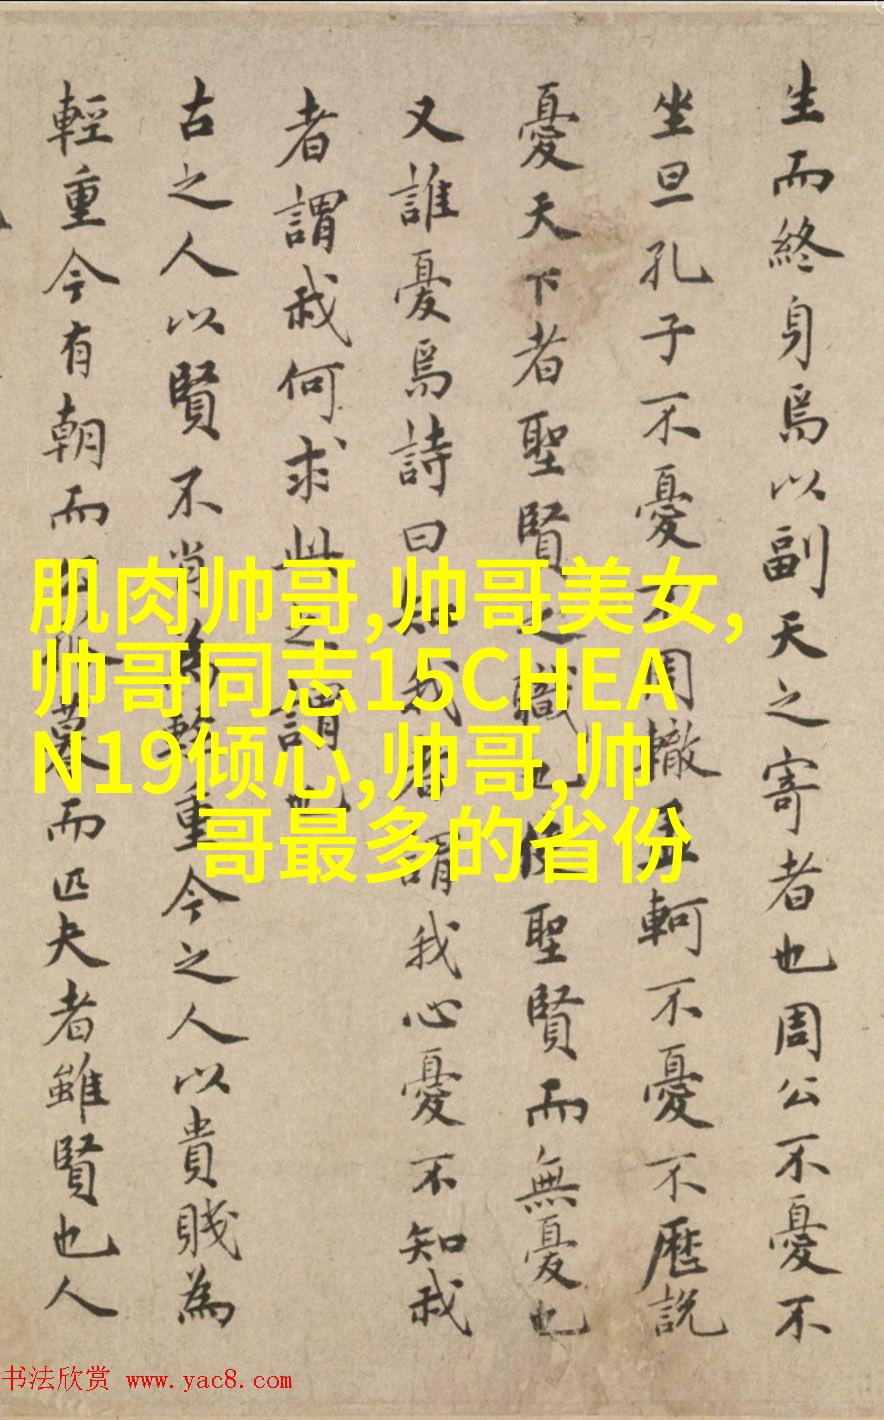 生而終身焉以副天之寄者也周公不憂不
坐旦孔子不憂不周轍孟軻不憂不歷說
憂天下者聖賢之職也使聖賢而無憂也
又誰憂焉詩曰知我者謂我心憂不知我
者謂我何求此之謂也
古之人以賢不肖為輕重今之人以貴賤為
輕重今有朝而公暮而匹夫者雖賢也人
肌肉帅哥,帅哥美女,
帅哥同志15CHEA
N19倾心,帅哥,帅
哥最多的省份
书法欣赏 www.yac8.com